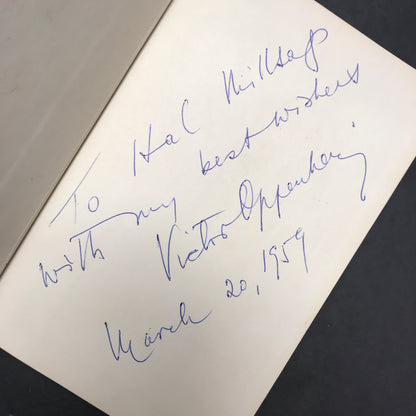 To Hal Millsap
with my best wishes
Victor Oppenheim
March 20, 1959